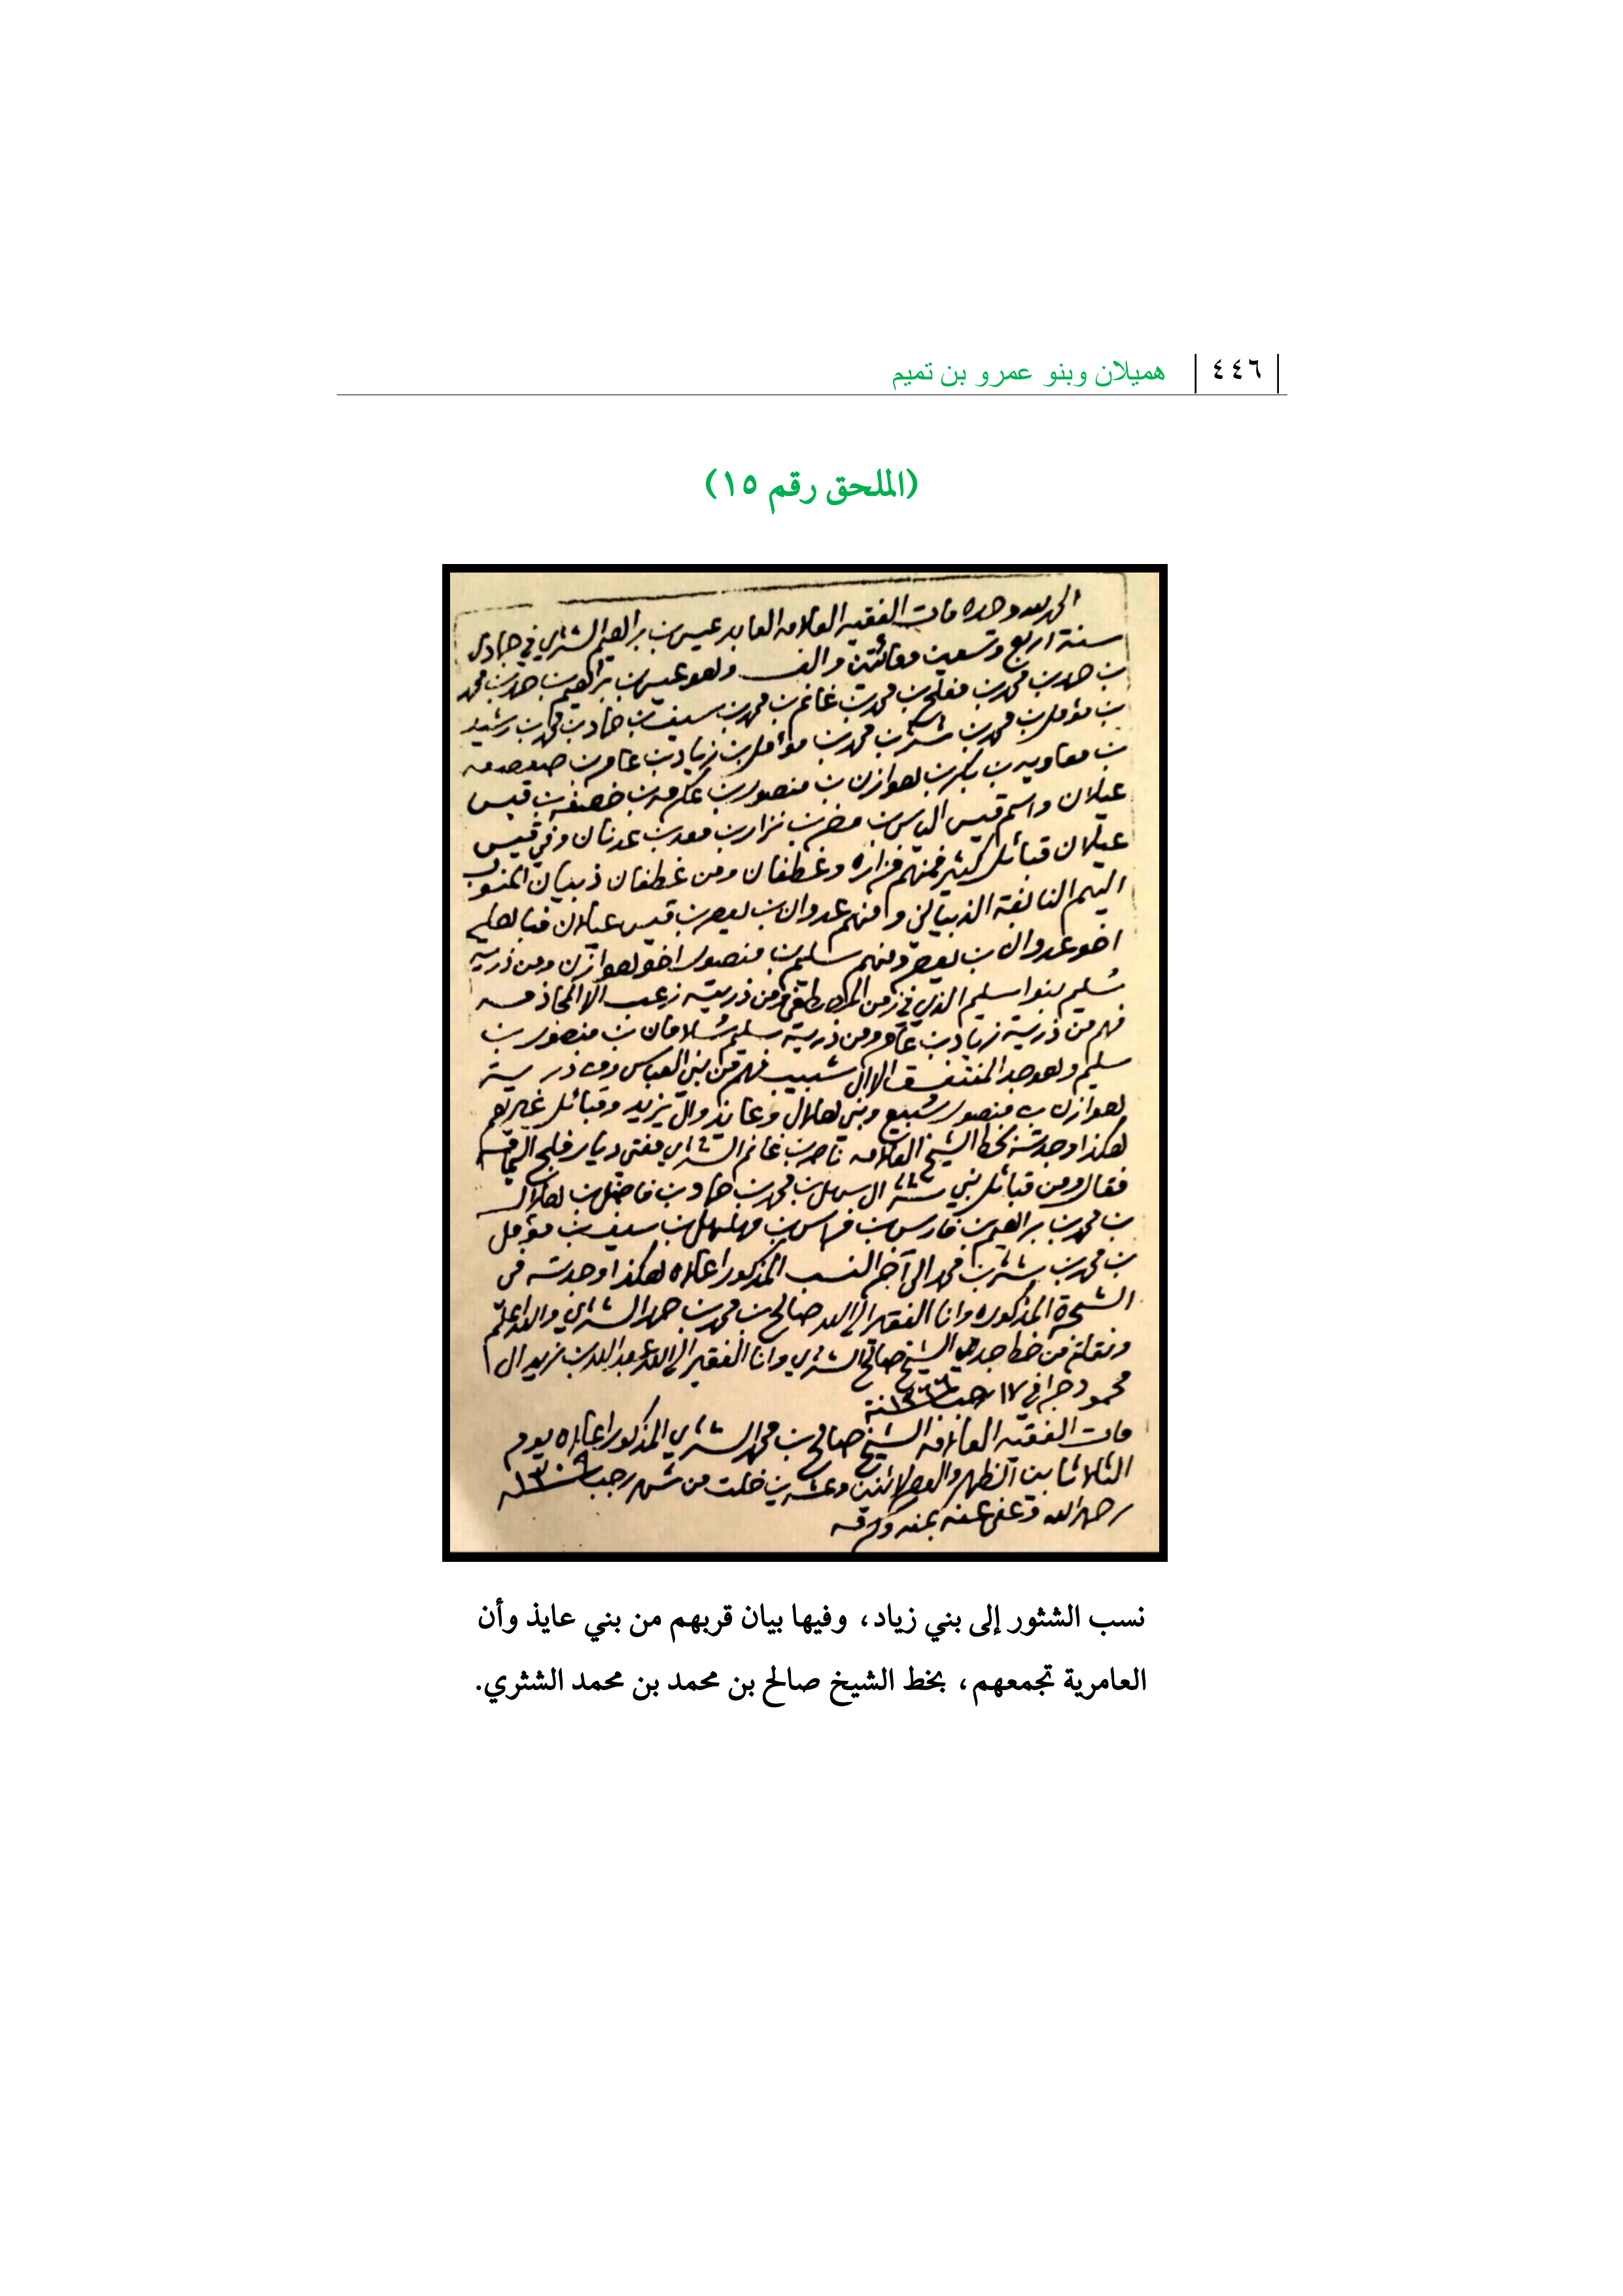 ٤٤٦ هميلان وبنو عمرو بن تميم
(الملحق رقم ١٥)
الحمد لله وحده مات الفقيه العلامه العابد عيسى بن براهيم الشثري في جمادى
سنة اربع وتسعين ومائتين والف وهو عيسى بن براهيم بن حمد بن محمد
بن حمد بن محمد بن مفلح بن محمد بن غانم بن محمد بن سيف بن حماد بن محمد بن رشيد
بن مؤمل بن محمد بن شثر بن محمد بن مؤامل بن زياد بن عامر بن صعصعه
بن معاويه بن بكر بن هوازن بن منصور بن عكرمه بن خصفه بن قيس
عيلان واسم قيس الياس بن مضر بن نزار بن معد بن عدنان وفي قيس
عيلان قبائل كثير فمنهم فزاره وغطفان ومن غطفان ذبيان المنسوب
اليهم النابغة الذبياني ومنهم عدوان بن يعصر بن قيس عيلان
اخو عدوان بن يعصر ومنهم سليم بن منصور اخو هوازن ومن ذرية
سليم بنوا سليم الذي في زمن المصطفى ومن ذريته زعب الا المحاذمه
فهم من ذرية زياد بن عامر ومن ذرية سليم سلامان بن منصور بن
سليم وهو جد المنتفق الا ال شبيب فهم من بني العباس ومن ذرية
هوازن بن منصور سبيع وبني هلال وعايذ وال يزيد وقبائل غيرهم
هكذا وجدته بخط الشيخ العلامه ناصر بن غانم الشثري مفتي ديار فلج اليمامه
فقال ومن قبائل بني شثر ال بن محمد بن حماد بن فاضل بن هلال
بن محمد بن براهيم بن فارس بن فراس بن مهلهل بن سيف بن مؤمل
بن محمد بن شثر بن محمد الى آخر النسب المذكور اعلاه هكذا وجدته في
الشجرة المذكوره وانا الفقير الى الله صالح بن محمد بن حمد الشثري والله اعلم
ونقلته من خط جدي الشيخ صالح الشثري وانا الفقير الى الله عبد الله بن زيد ال
محمود وحرر في ١٧ رجب سنة
مات الفقيه العلامه الشيخ صالح بن محمد الشثري المذكور اعلاه يوم
الثلاثا بين الظهر والعصر لاثنين وعشرين خلت من شهر رجب ١٣٠٩
رحمه الله وعفى عنه بمنه وكرمه
نسب الشثور إلى بني زياد، وفيها بيان قربهم من بني عايذ وأن
العامرية تجمعهم، بخط الشيخ صالح بن محمد بن محمد الشثري.